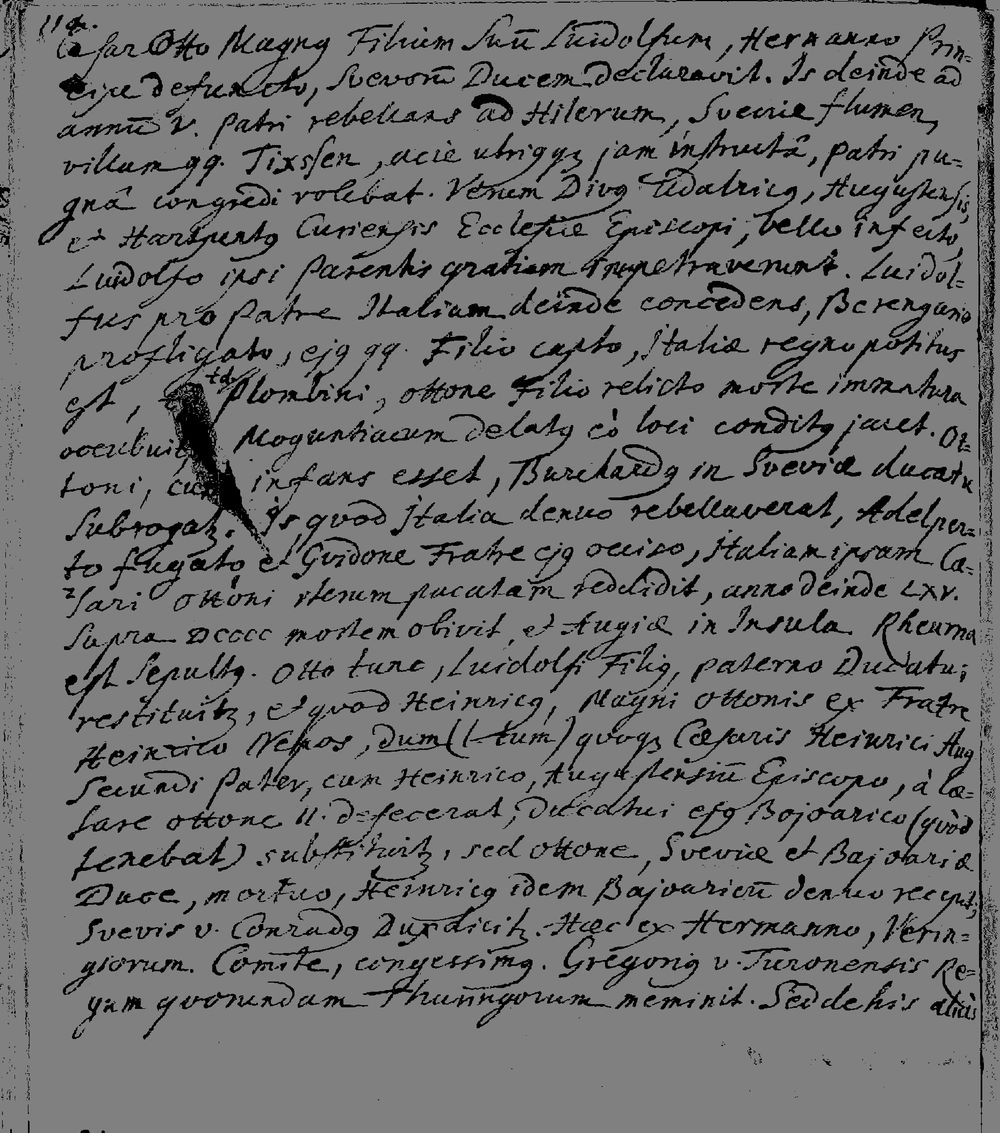 114.
Cæsar Otto Magnꝰ Filium Suū Luidolfum, Hermanno Prin=
cipe defuncto, Svevorū Ducem declaravit. Is deinde ad
annū V. patri rebellans ad Hilerum, Sveviæ flumen,
villam qq. Tixssen, acie utriqꝫ jam instructâ, patri pu=
gnâ congredi volebat. Verum Divꝰ Udalricꝰ, Augustensis,
et Hartpertꝰ Curiensis Ecclesiæ Episcopi, bello infecto,
Luidolfo ipsi Parentis gratiam impetraverunt. Luidol=
fus pro Patre Italiam deinde concedens, Berengario
profligato, ejꝰ qq. Filio capto, Italiæ regno potitus
est, td. Plombini, Ottone Filio relicto morte immatura
occubuit, Moguntiacum delatꝰ eò loci conditꝰ jacet. Ot=
toni, cum infans esset, Burchardꝰ in Sveviæ ducatu
Subrogatꝫ. Is, quod Italia denuo rebellaverat, Adelper=
to fugato et Gvidone Fratre ejꝰ occiso, Italiam ipsam Cæ=
sari Ottoni iterum pacatam reddidit, anno deinde LXV.
supra DCCCC mortem obivit, et Augiæ in Insula Rheuma
est sepultꝰ. Otto tunc, Luidolfi Filiꝰ, paterno Ducatui
restituitꝫ, et quod Heinricꝰ, Magni Ottonis ex Fratre
Heinrico Nepos, dum (l. tum) quoqꝫ Cæsaris Heinrici Aug
Secundi Pater, cum Heinrico, Augustensiū Episcopo, à Cæ=
sare Ottone II. defecerat, Ducatui ejꝰ Bojoarico (quòd
tenebat) substituitꝫ, sed Ottone, Sveviæ et Bajoariæ
Duce, mortuo, Heinricꝰ idem Bajoaricū denuo recepit,
Svevis v. Conradꝰ Dux dicitꝫ. Hæc ex Hermanno, Verin=
giorum Comite, congessimꝰ. Gregoriꝰ v. Turonensis Re=
gum quorundam Thuringorum meminit. Sed de his aliàs